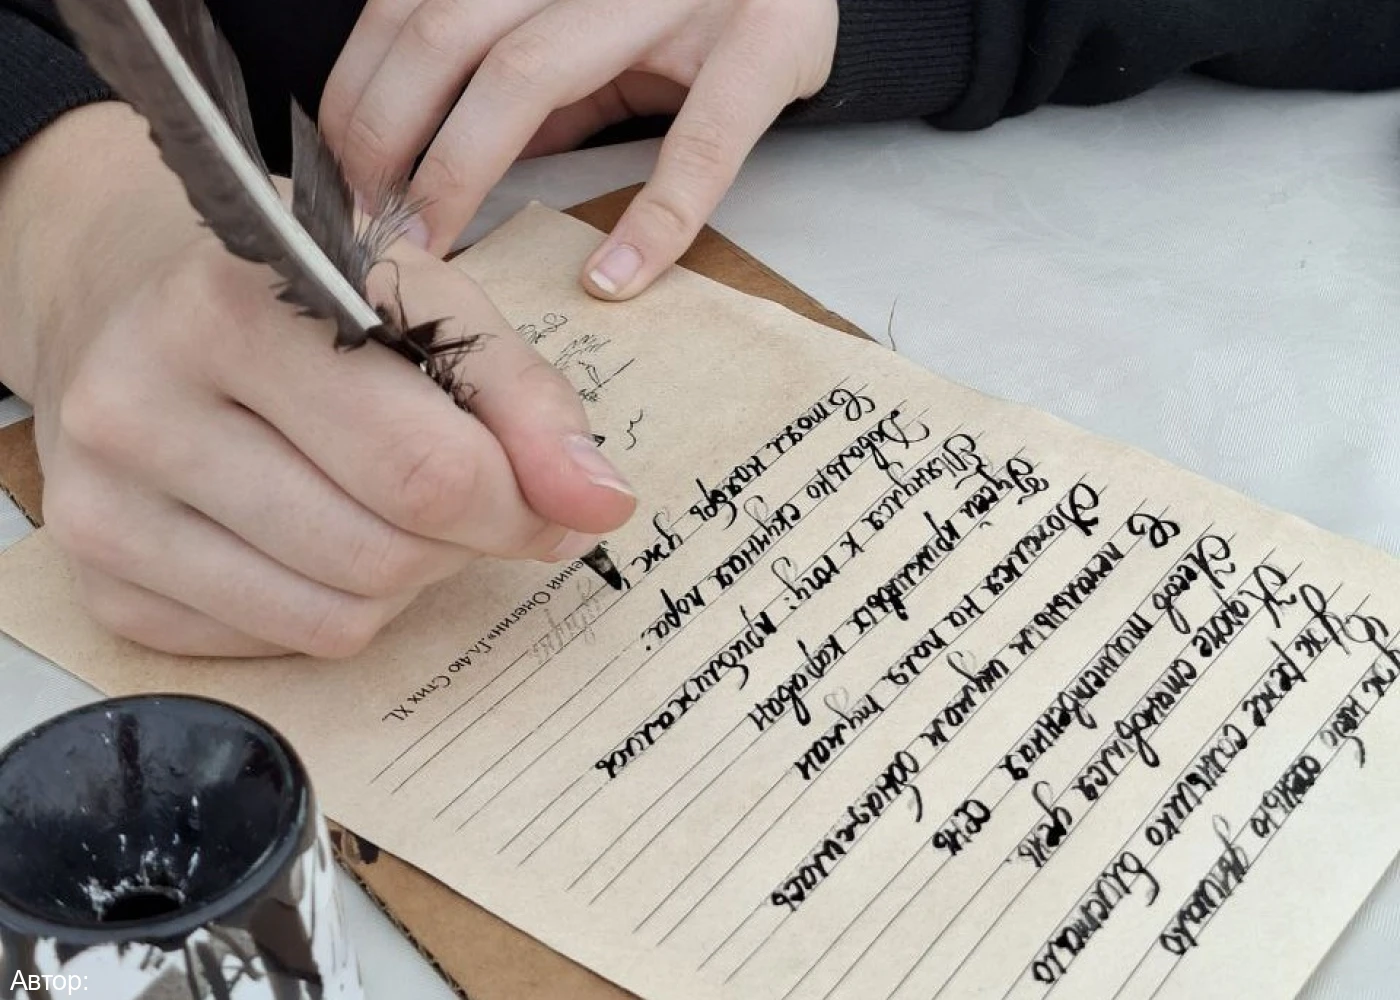 Уж небо осенью дышало
Уж реже солнышко блистало
Короче становился день.
Лесов таинственная сень
С печальным шумом обнажилась
Ложился на поля туман
Гусей крикливых караван
Тянулся к югу: приближалась
Довольно скучная пора:
Стоял ноябрь уж
ений Онегин. Гл.4ю Стих XL
Автор: